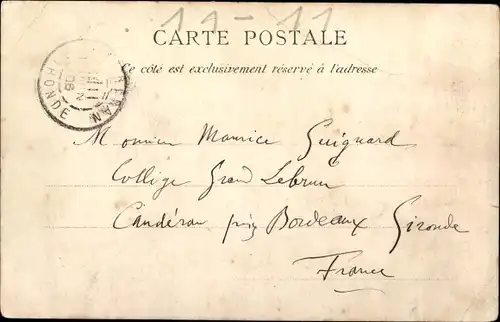 11-11
CARTE POSTALE
Ce côté est exclusivement réservé à l'adresse
GIRONDE
06
Monsieur Maurice Guignard
Collège Grand Lebrun
Caudéran près Bordeaux Gironde
France